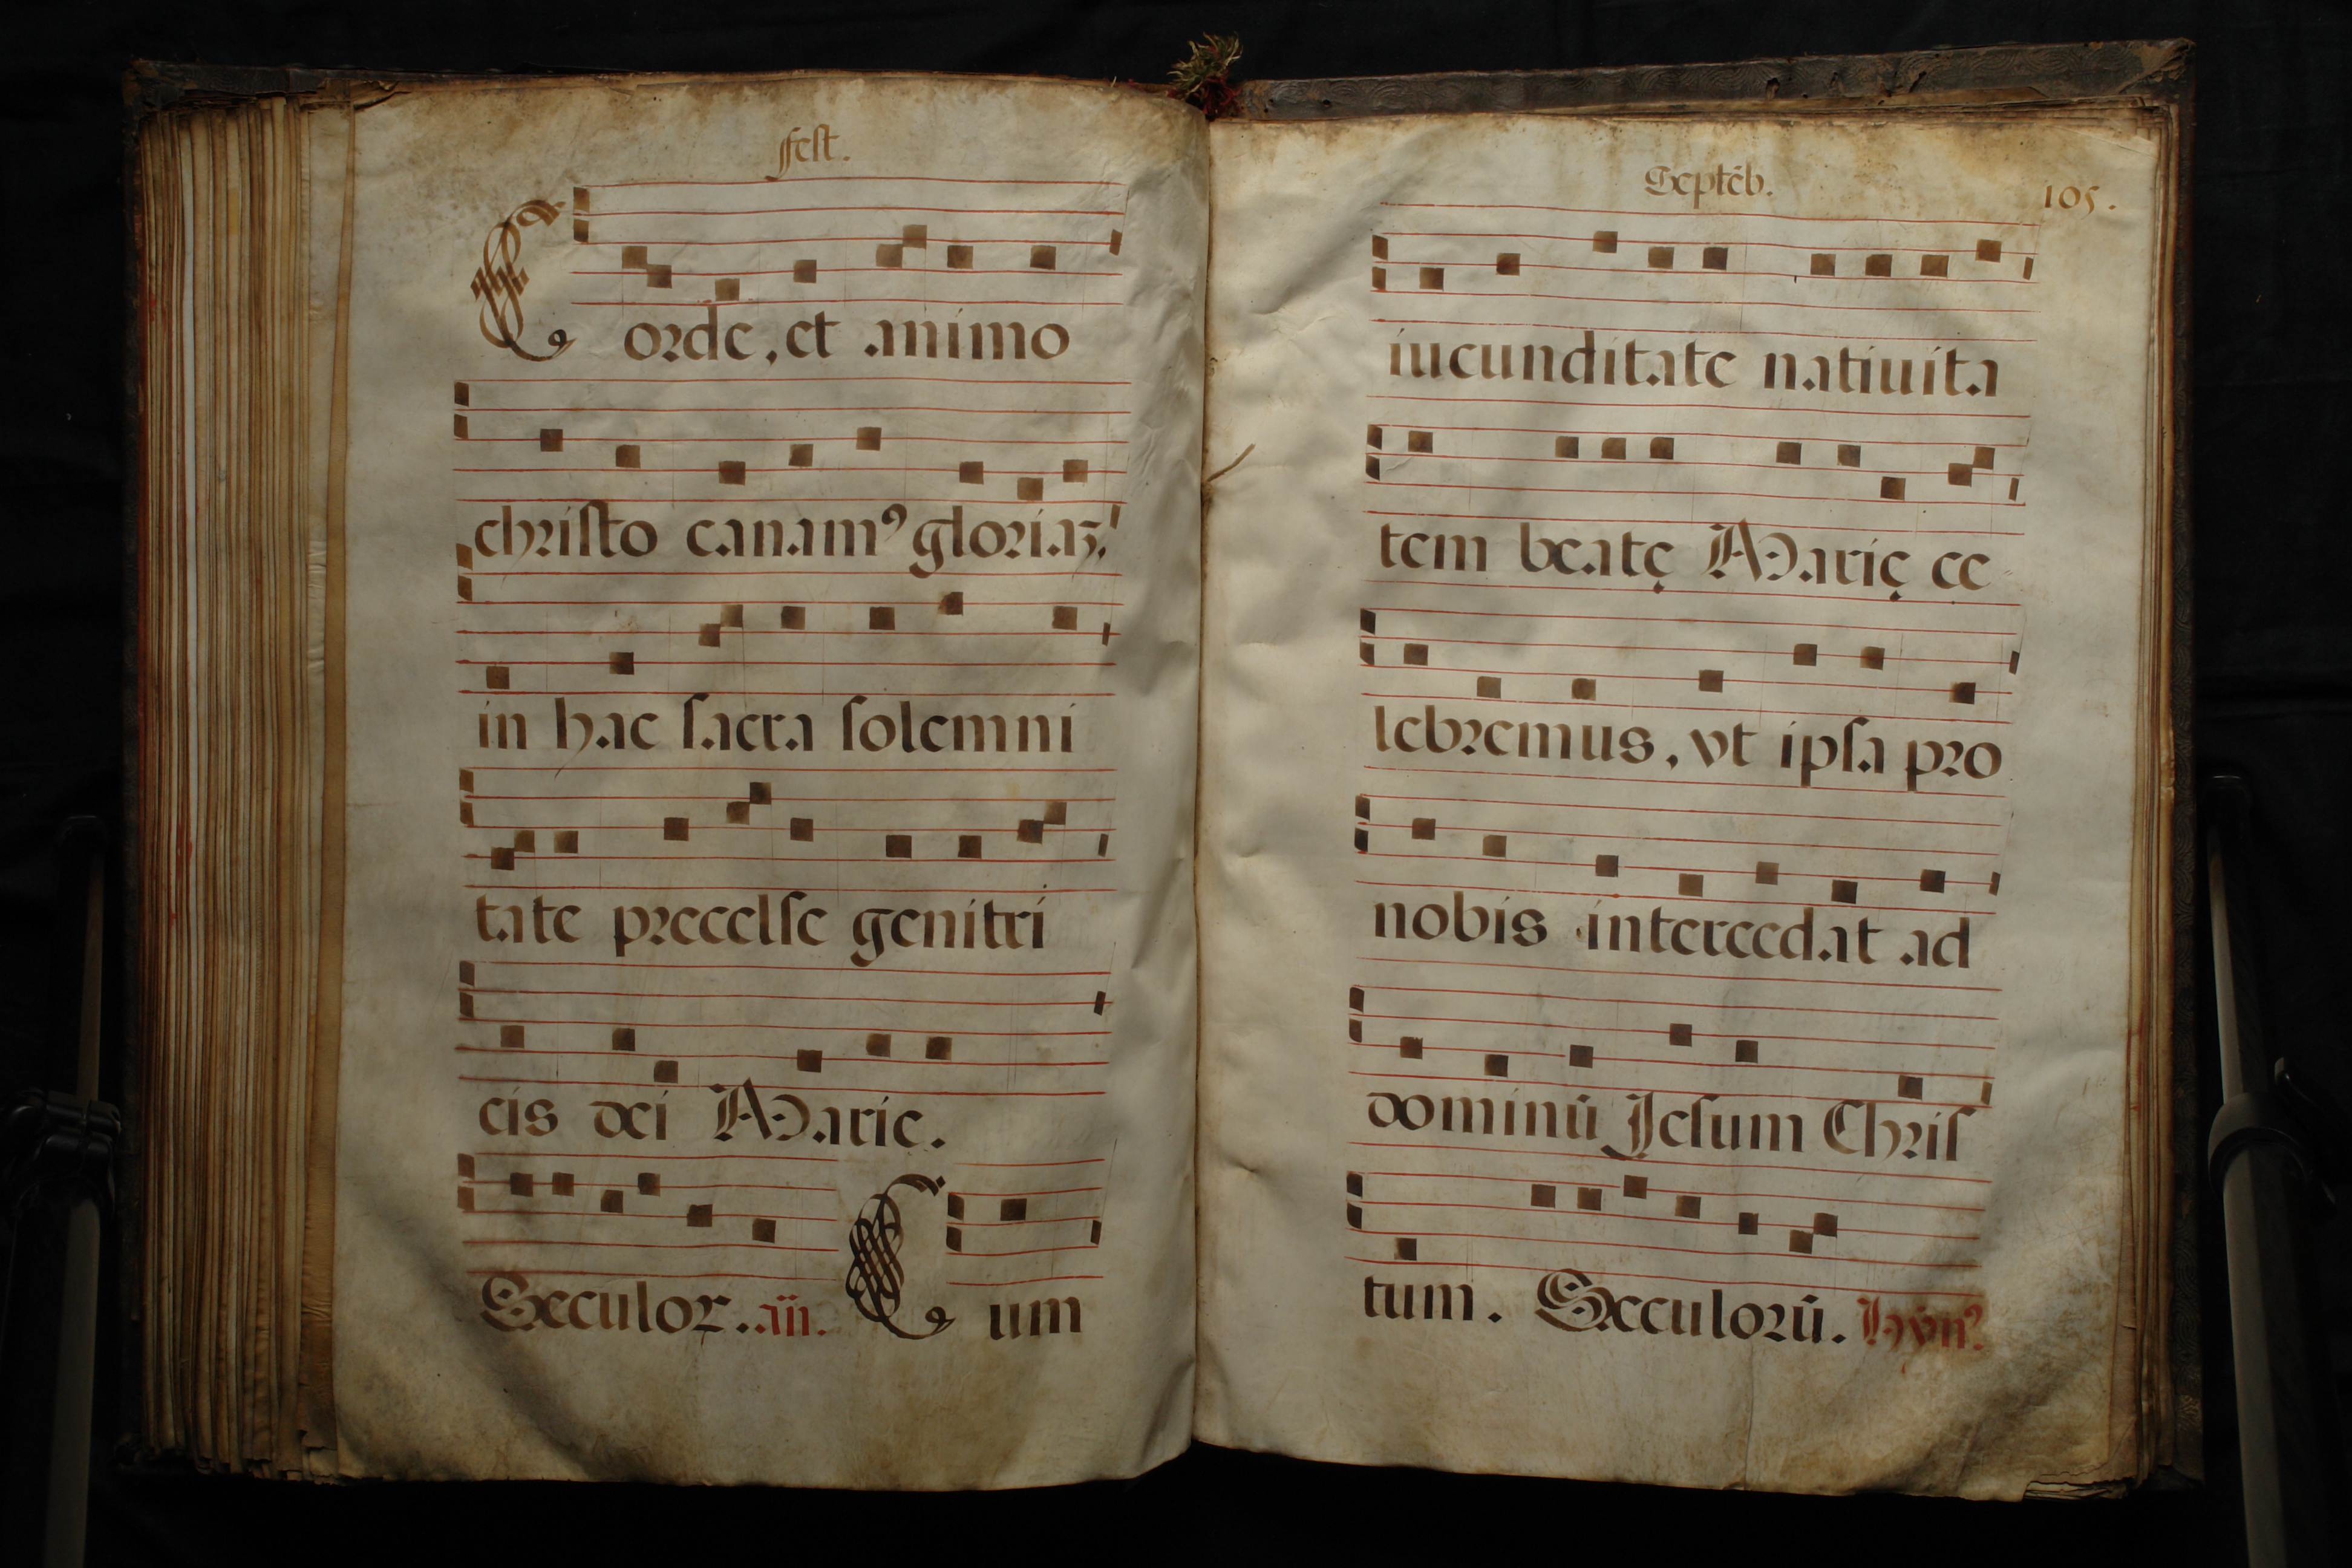 Fest.
Corde, et animo
christo canamꝰ gloriaꝫ,
in hac sacra solemni
tate precelse genitri
cis dei Marie.
Seculoꝝ. añ. Cum
Septẽb. 105.
iucunditate natiuita
tem beatę Marię ce
lebremus, vt ipsa pro
nobis intercedat ad
dominũ Jesum Chris
tum. Seculorũ. Hỹnꝰ.